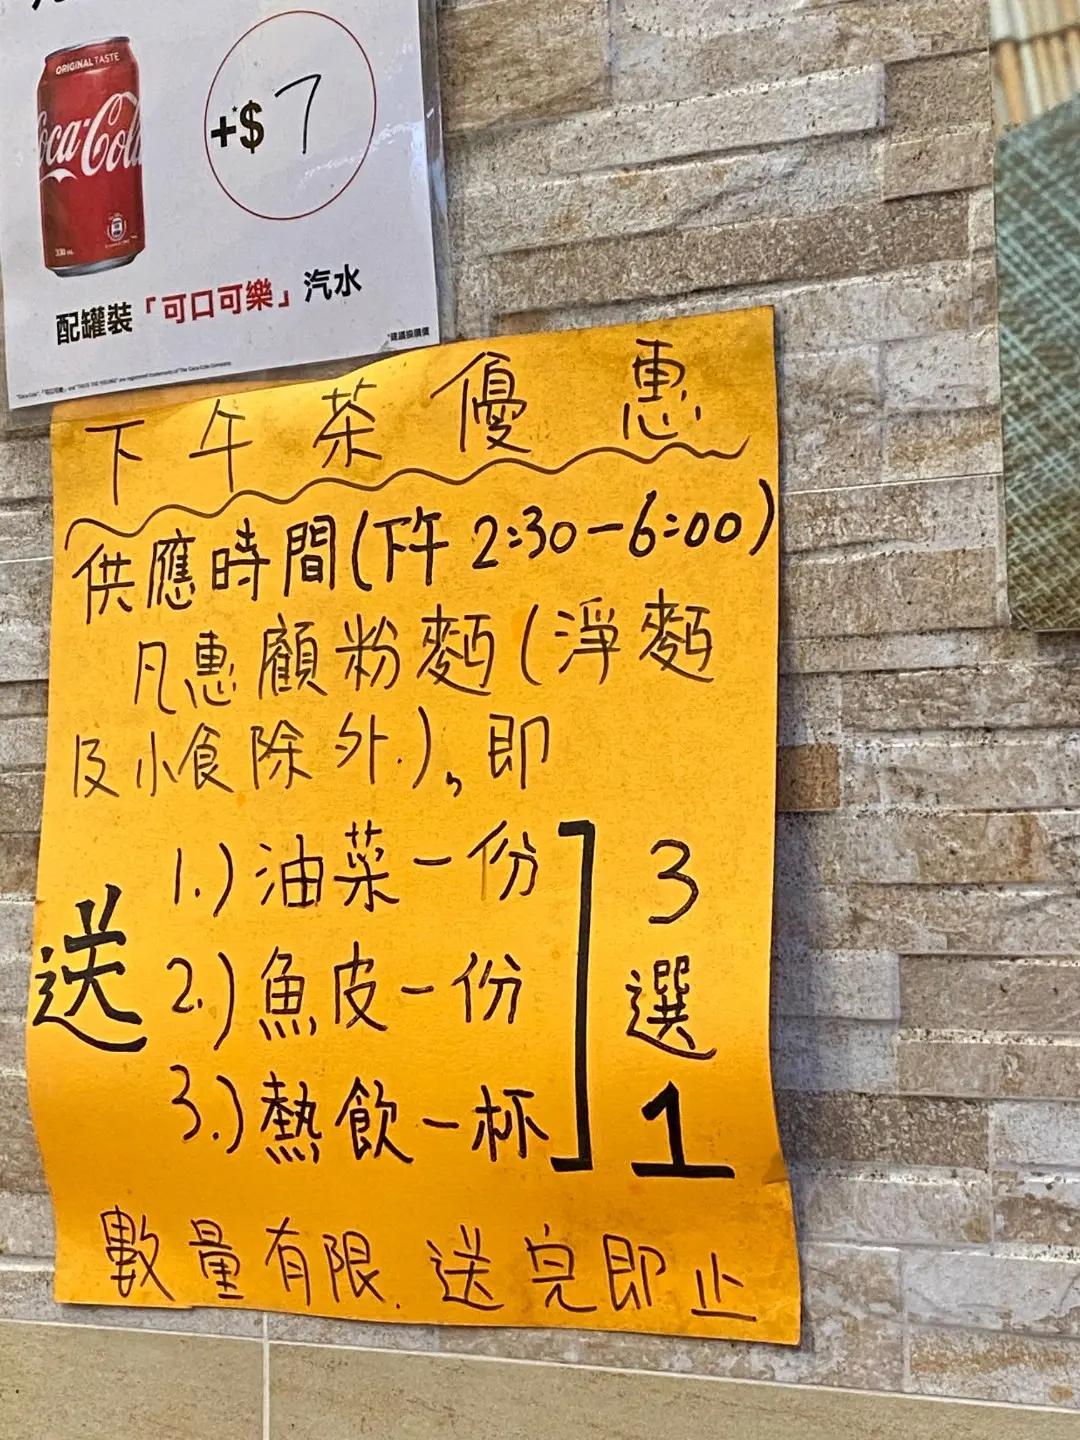 ORIGINAL TASTE
Coca-Cola
+$7
配罐裝「可口可樂」汽水
*建議零售價
下午茶優惠
供應時間(下午 2:30-6:00)
凡惠顧粉麵(淨麵
及小食除外),即
送
1.)油菜一份
2.)魚皮一份
3.)熱飲一杯
3
選
1
數量有限.送完即止